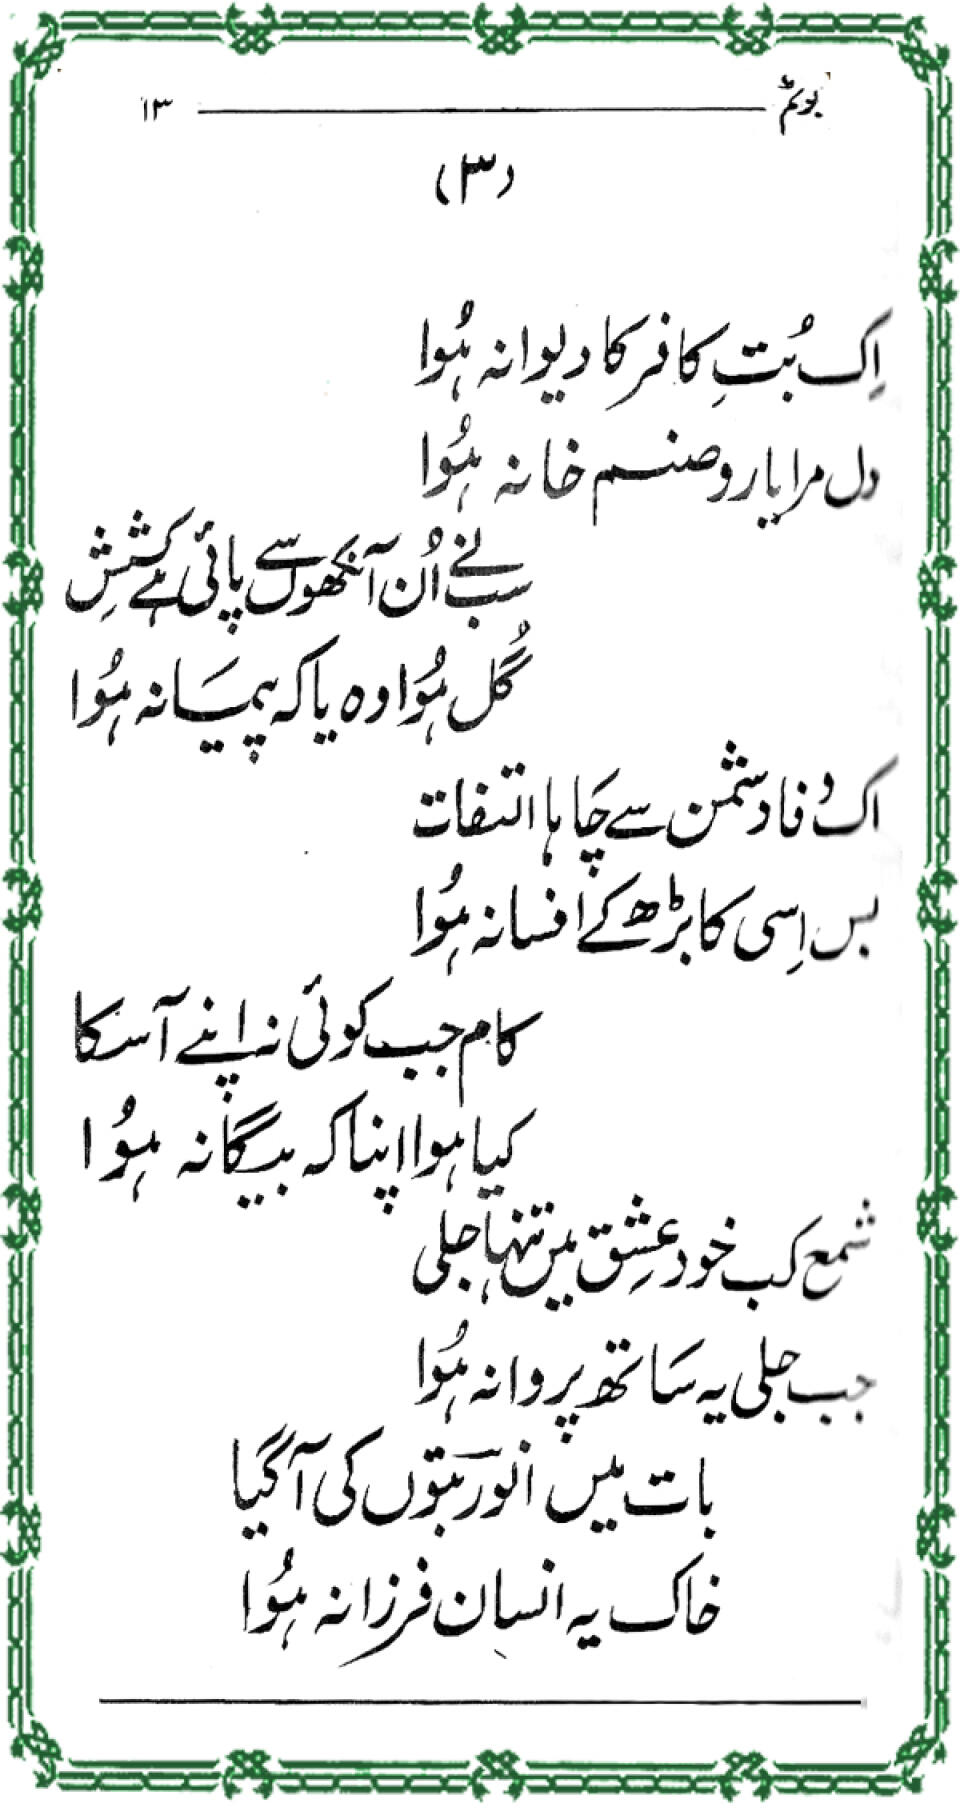 بوکم ۱۳
(۳)
اِک بُتِ کافر کا دیوانہ ہُوا
دل مرا یار و صنم خانہ ہُوا
سبنے اُن آنکھوں سے پائی ہے کشش
گُل ہُوا وہ یا کہ پیمانہ ہُوا
اک وفا دشمن سے چاہا التفات
بس اِسی کا بڑھ کے افسانہ ہُوا
کام جب کوئی نہ اپنے آسکا
کیا ہوا اپنا کہ بیگانہ ہُوا
شمع کب خود عشق میں تنہا جلی
جب جلی یہ ساتھ پروانہ ہُوا
بات میں انورؔ بتوں کی آگیا
خاک یہ انسان فرزانہ ہُوا